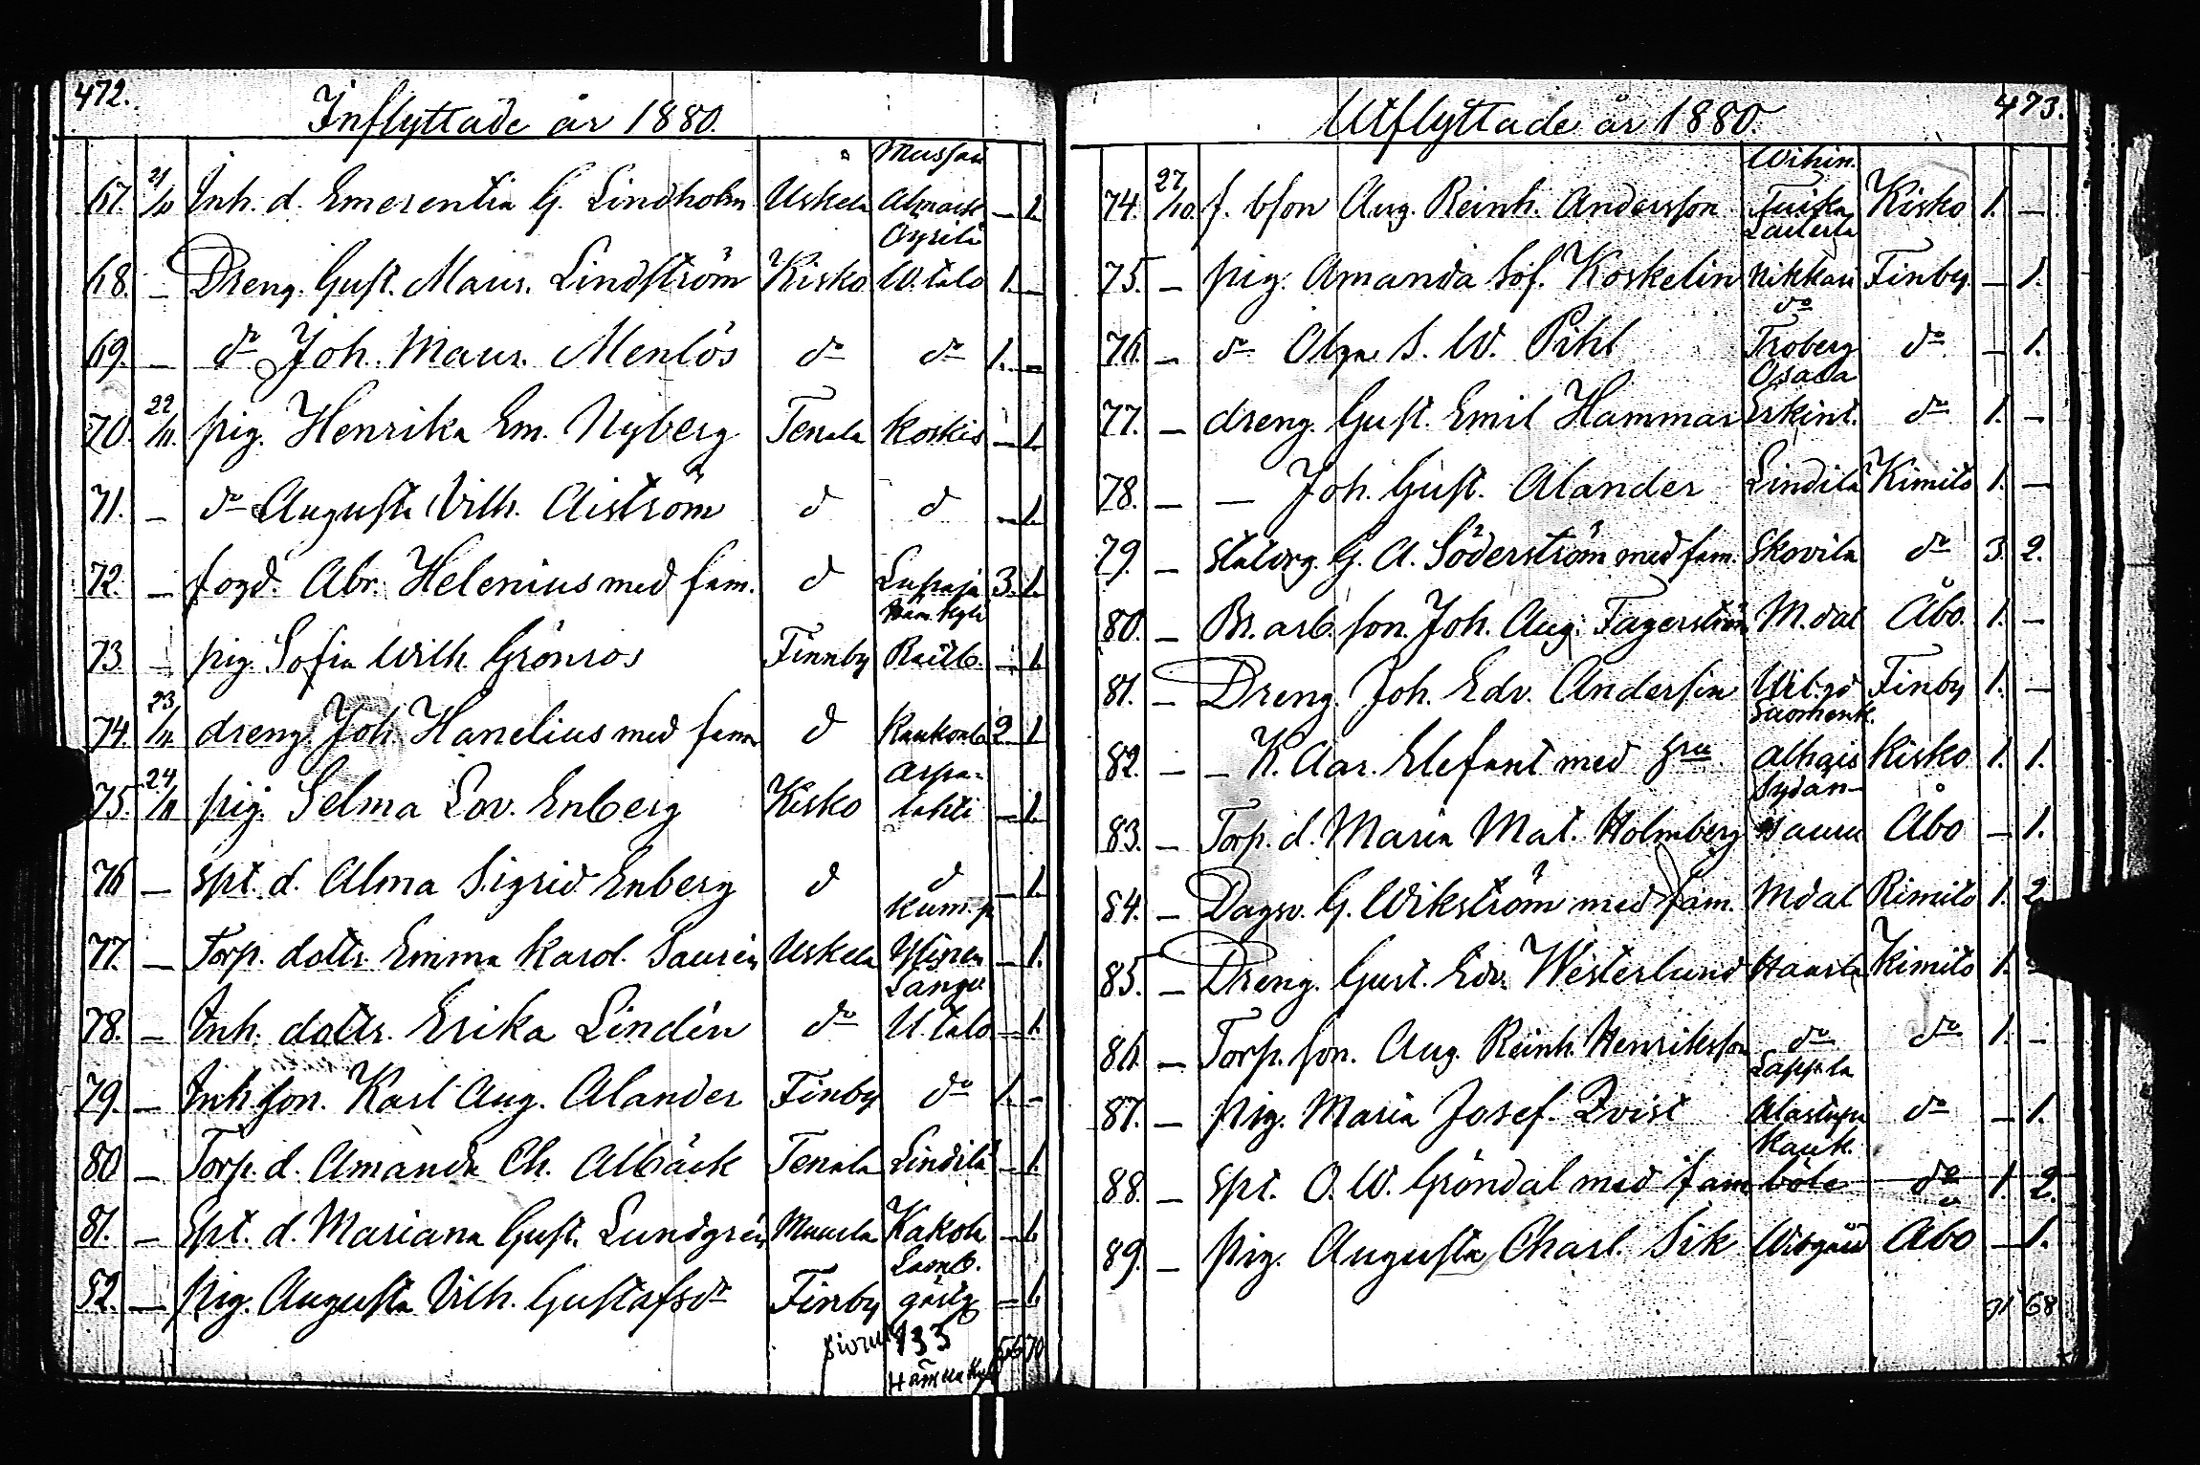 472.
Inflyttade år 1880.
67. 21/10 Inh. d. Emerentia G. Lindholm Uskela – 1.
68. – Dreng. Gust. Maur. Lindström Kisko W. talo 1. –
69. – do Joh. Maur. Menlös do do 1. –
70. 22/11. pig. Henrika Em. Nyberg Tenala Koskis – 1.
71. – do Augusta Vilh. Aiström d d – 1.
72. – fogd. Abr. Helenius med fam. d 3. 1.
73. – pig. Sofia Wilh. Grönros Finnby – 1.
74. 23/11. dreng. Joh. Hanelius med fam d 2. 1
75. 24/11 pig. Selma Lov. Enberg Kisko Aspa- lahti – 1.
76 – Spt. d. Alma Sigrid Enberg d d – 1.
77. – Torp. dottr. Emma Karol. Saurén Uskela – 1.
78. – Inh. dottr. Erika Lindén do – 1.
79. – Inh. son. Karl Aug. Alander Finby do 1. –
80 – Torp. d. Amanda Ch. Albäck Tenala Lindilä – 1.
81. – Spt. d. Mariana Gust. Lundgrén – 1.
82. – pig. Augusta Vilh. Gustafsdr Finby – 1.
133
70
473.
Utflyttade år 1880.
74. 27/10. f. bson Aug. Reinh. Andersson Kisko 1. –
75. – pig. Amanda Sof. Koskelin Nikkari Finby – 1.
76. – do Olga S. W. Pihl do Troberg do – 1.
77. – dreng. Gust. Emil Hammar Erkint. do 1. –
78. – – Joh. Gust. Alander Lindilä Kimito 1. –
79. – Statorg. G. A. Söderström med fam. Skovila do 3. 2.
80. – Br. arb. son. Joh. Aug. Fagerström M. dal Åbo. 1. –
81. – Dreng. Joh. Edv. Andersin Finby 1. –
82. – – K. Aar. Elefant med Kisko 1. 1.
83. – Torp. d. Maria Mat. Holmberg Sydän- maa Åbo – 1.
84. – Dagsv. G. Wikström med fam. Mdal Rimito 1. 2.
85. – Dreng. Gust. Edv. Westerlund Haarla Kimito 1.
86. – Torp. son. Aug. Reinh. Henriksson do do 1. –
87. – pig. Maria Josef. Qvist Lappla do – 1.
88. – Spt. O. W. Gröndal med fam böle do 1. 2.
89. – pig. Augusta Charl. Sik Wibgård Åbo – 1.
91 68